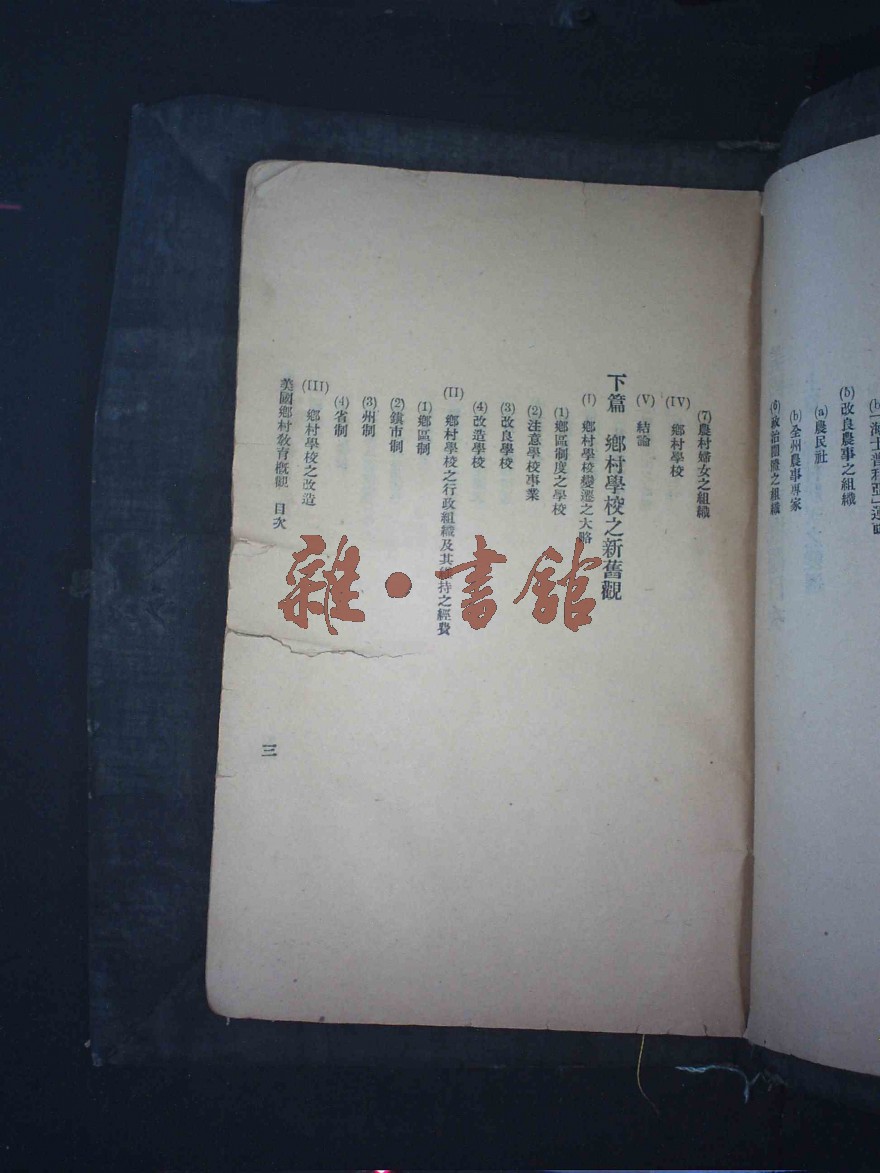 (b)
(5)改良農事之組織
(a)農民社
(b)全州農事專家
(6)政治團體之組織
(7)農村婦女之組織
(IV) 鄉村學校
(V) 結論
下篇 鄉村學校之新舊觀
(I) 鄉村學校變遷之大略
(1)鄉區制度之學校
(2)注意學校事業
(3)改良學校
(4)改造學校
(II) 鄉村學校之行政組織及其維持之經費
(1)鄉區制
(2)鎮市制
(3)州制
(4)省制
(III) 鄉村學校之改造
美國鄉村教育概觀 目次
三
雜·書館